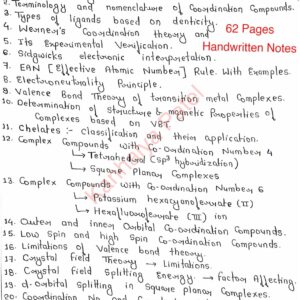 2. Terminology and nomenclature of Coordination Compounds.
3. Types of ligands based on denticity.
4. Werner's Coordination theory and
5. Its Experimental Verification.
6. Sidgwicks electronic interpretation.
7. EAN [Effective Atomic Number] Rule. With Examples.
8. Electroneutrality Principle.
9. Valence Bond Theory of transition metal Complexes.
10. Determination of structure & magnetic Properties of
Complexes based on VBT
11. Chelates :- Classification and their application.
12. Complex Compounds with Co-ordination Number 4
↳ Tetrahedral (Sp³ hybridization)
↳ Square Planar Complexes
13. Complex Compounds with Co-ordination Number 6
↳ Potassium hexacyanoferrate (II)
↳ Hexafluoroferrate (III) ion
14. Outer and inner Orbital Co-ordination Compounds.
15. Low Spin and high Spin Co-ordination Compounds.
16. Limitations of Valence bond theory.
17. Crystal field Theory → Limitations.
18. Crystal field Splitting Energy → factor Affecting
19. d-orbital splitting in Square planar Complexes.
62 Pages
Handwritten Notes